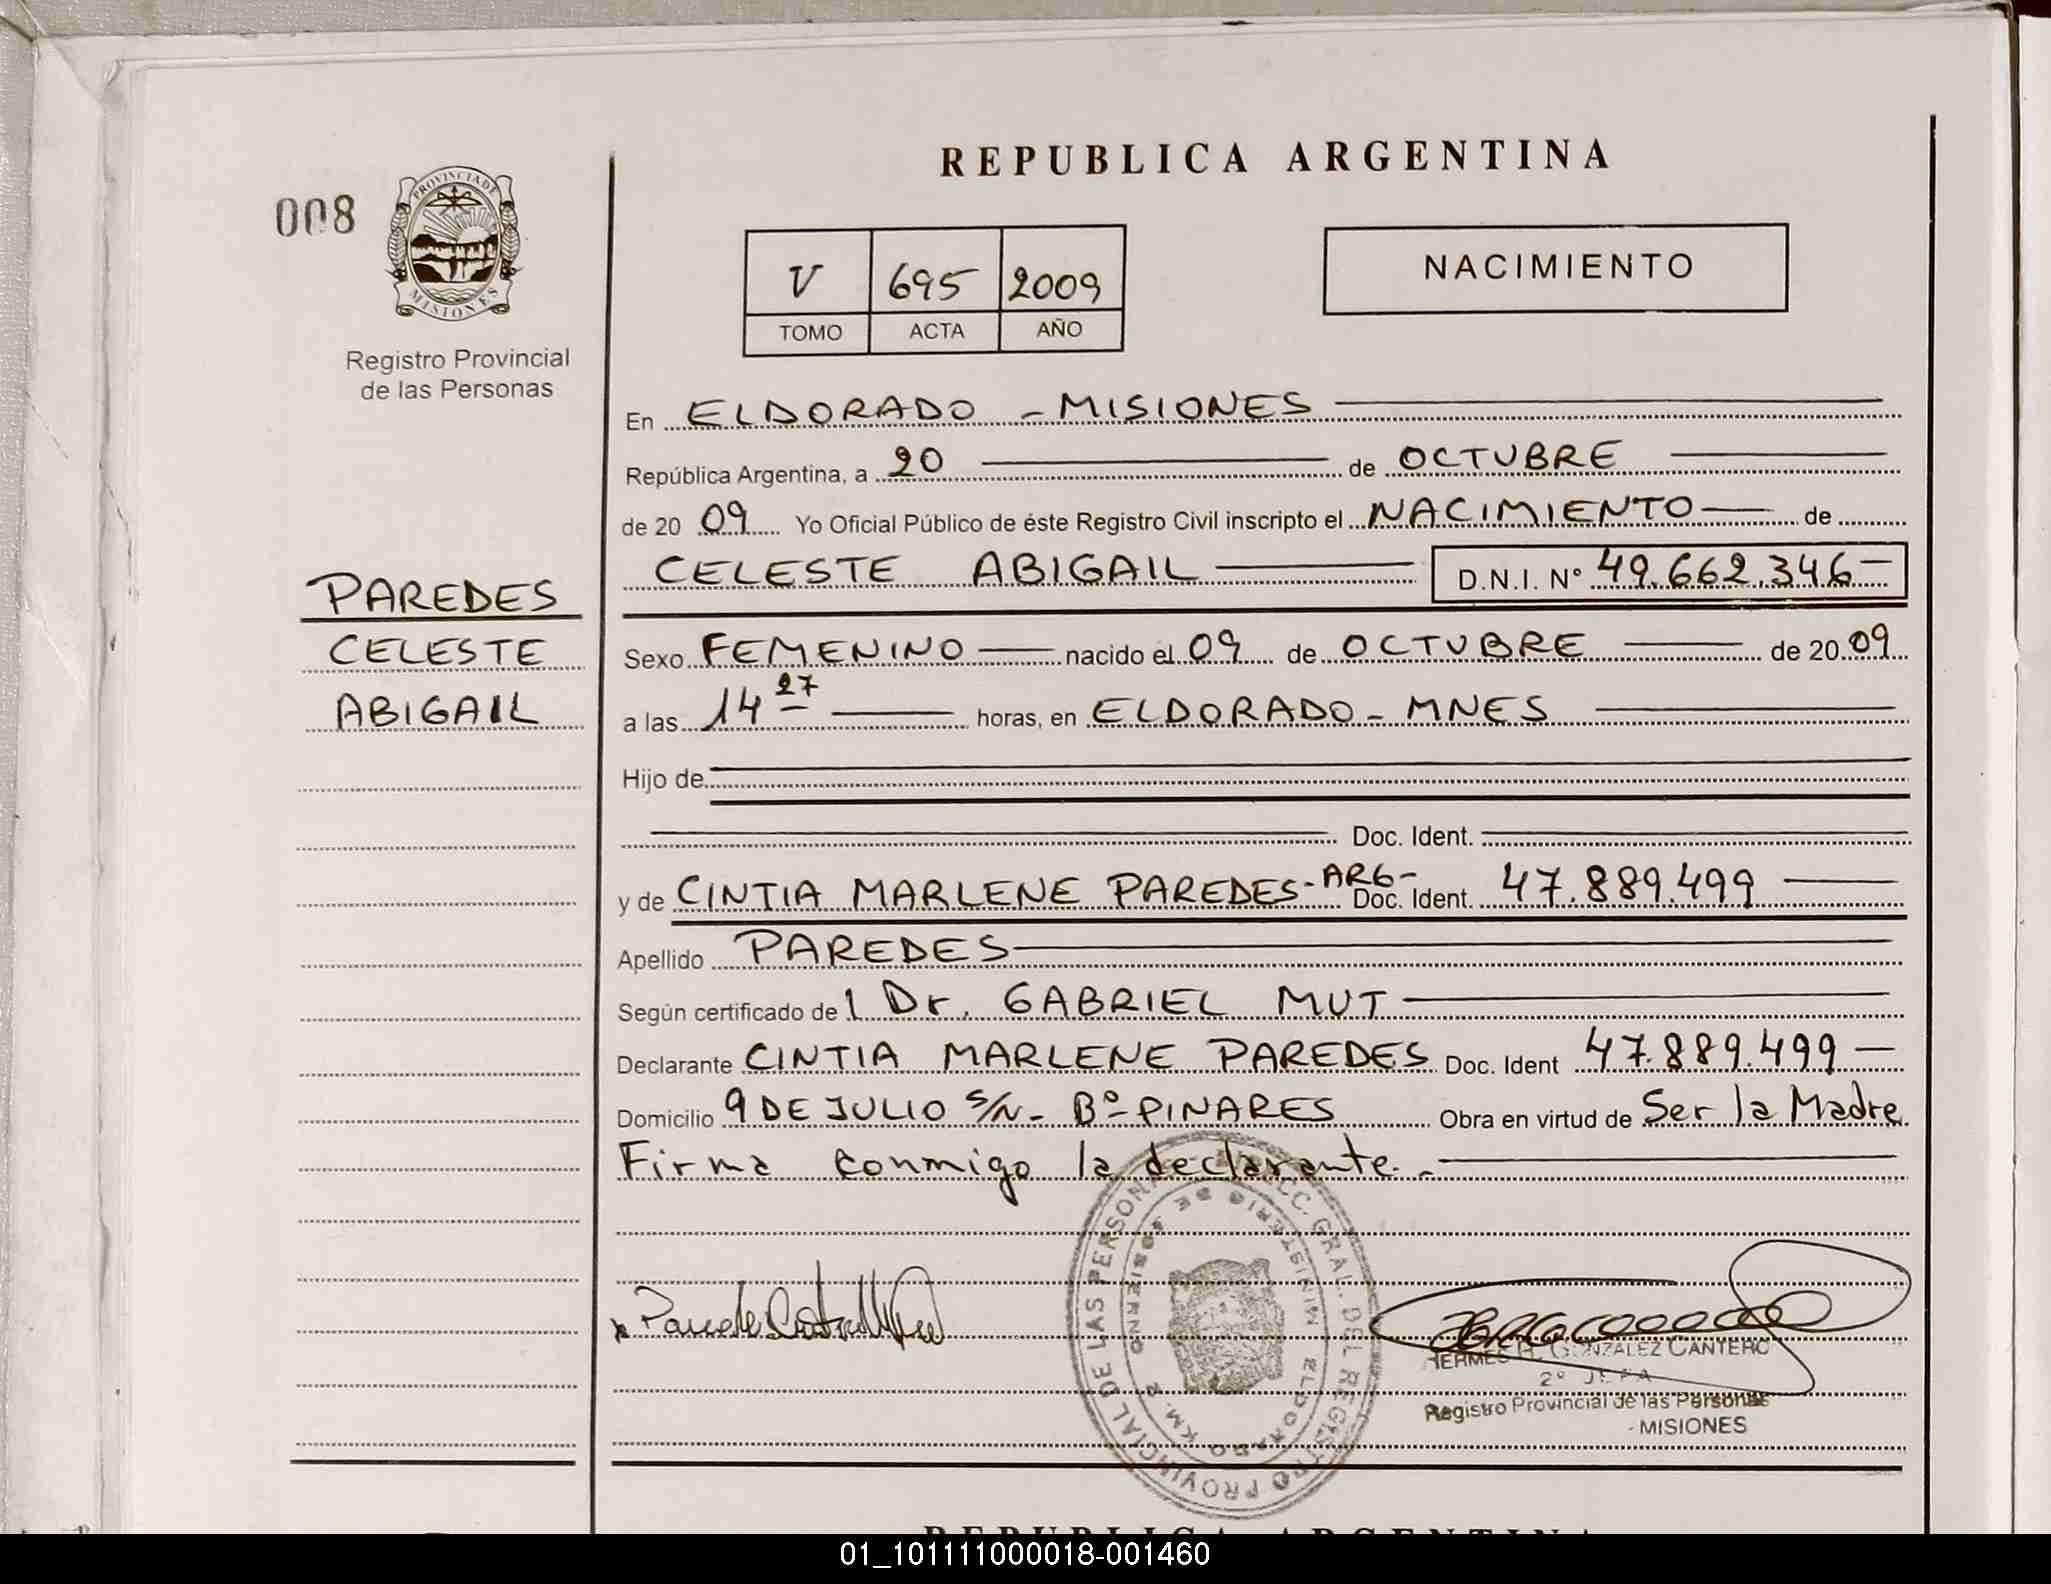 REPUBLICA ARGENTINA
008
PROVINCIA DE
MISIONES
Registro Provincial
de las Personas
V 695 2009
TOMO ACTA AÑO
NACIMIENTO
En ELDORADO - MISIONES
República Argentina, a 20 de OCTUBRE
de 20 09 Yo Oficial Público de éste Registro Civil inscripto el NACIMIENTO de
CELESTE ABIGAIL D.N.I. N° 49.662.346
PAREDES
CELESTE
ABIGAIL
Sexo FEMENINO nacido el 09 de OCTUBRE de 20 09
a las 14 27 horas, en ELDORADO - MNES
Hijo de
Doc. Ident.
y de CINTIA MARLENE PAREDES - ARG - Doc. Ident. 47.889.499
Apellido PAREDES
Según certificado de l Dr. GABRIEL MUT
Declarante CINTIA MARLENE PAREDES Doc. Ident 47.889.499
Domicilio 9 DE JULIO S/N - B° PINARES Obra en virtud de Ser la Madre
Firma conmigo la declarante. -
DIRECC. GRAL. DEL REGISTRO PROVINCIAL DE LAS PERSONAS
MINISTERIO DE GOBIERNO
ELDORADO KM. 2
GONZALEZ CANTERO
2° JEFA
Registro Provincial de las Personas
- MISIONES
REPUBLICA ARGENTINA
01_101111000018-001460